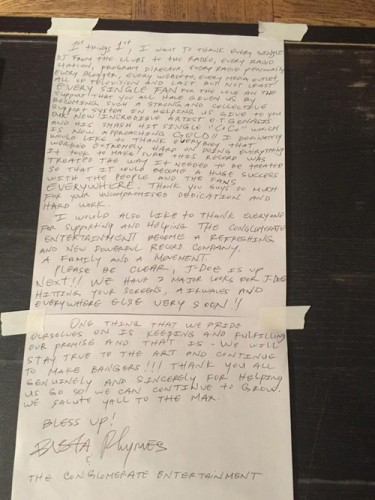 1st THINGS 1st, I WANT TO THANK EVERY SINGLE
DJ FROM THE CLUBS TO THE RADIO, EVERY RADIO
STATION, PROGRAM DIRECTOR, EVERY RADIO PERSONALITY
EVERY BLOGGER, EVERY WEBSITE, EVERY MEDIA OUTLET,
ALL OF TELEVISION AND LAST BUT NOT LEAST
EVERY SINGLE FAN FOR THE LOVE AND THE
SUPPORT THAT YOU ALL HAVE GIVEN US BY
BECOMING SUCH A STRONG AND COLLECTIBLE
SUPPORT SYSTEM IN HELPING US GIVE TO YOU
OUR NEW INCREDIBLE ARTIST O.T. GENASIS
AND HIS SMASH HIT SINGLE "CoCo" WHICH
IS NOW APPROACHING GOLD!! I DEFINITELY
WOULD LIKE TO THANK EVERYBODY THAT
WORKED EXTREMELY HARD ON DOING EVERYTHING
IT TOOK TO MAKE SURE THIS RECORD WAS
TREATED THE WAY IT NEEDED TO BE TREATED
SO THAT IT COULD BECOME A HUGE SUCCESS
WITH THE PEOPLE AND THE FANS
EVERYWHERE. THANK YOU GUYS SO MUCH
FOR YOUR UNCOMPROMISED DEDICATION AND
HARD WORK.
I WOULD ALSO LIKE TO THANK EVERYONE
FOR SUPPORTING AND HELPING THE CONGLOMERATE
ENTERTAINMENT BECOME A REFRESHING
AND NEW POWERFUL RECORD COMPANY,
A FAMILY AND A MOVEMENT.
PLEASE BE CLEAR, J-DOE IS UP
NEXT!! WE HAVE 2 MAJOR LOOKS FOR J-DOE
HITTING YOUR SCREENS, AIRWAVES AND
EVERYWHERE ELSE VERY SOON!!
ONE THING THAT WE PRIDE
OURSELVES ON IS KEEPING AND FULFILLING
OUR PROMISE AND THAT IS - WE WILL
STAY TRUE TO THE ART AND CONTINUE
TO MAKE BANGERS!!! THANK YOU ALL
GENUINELY AND SINCERELY FOR HELPING
US GO SO WE CAN CONTINUE TO GROW.
WE SALUTE YALL TO THE MAX.
BLESS UP!
BUSTA Rhymes
&
THE CONGLOMERATE ENTERTAINMENT